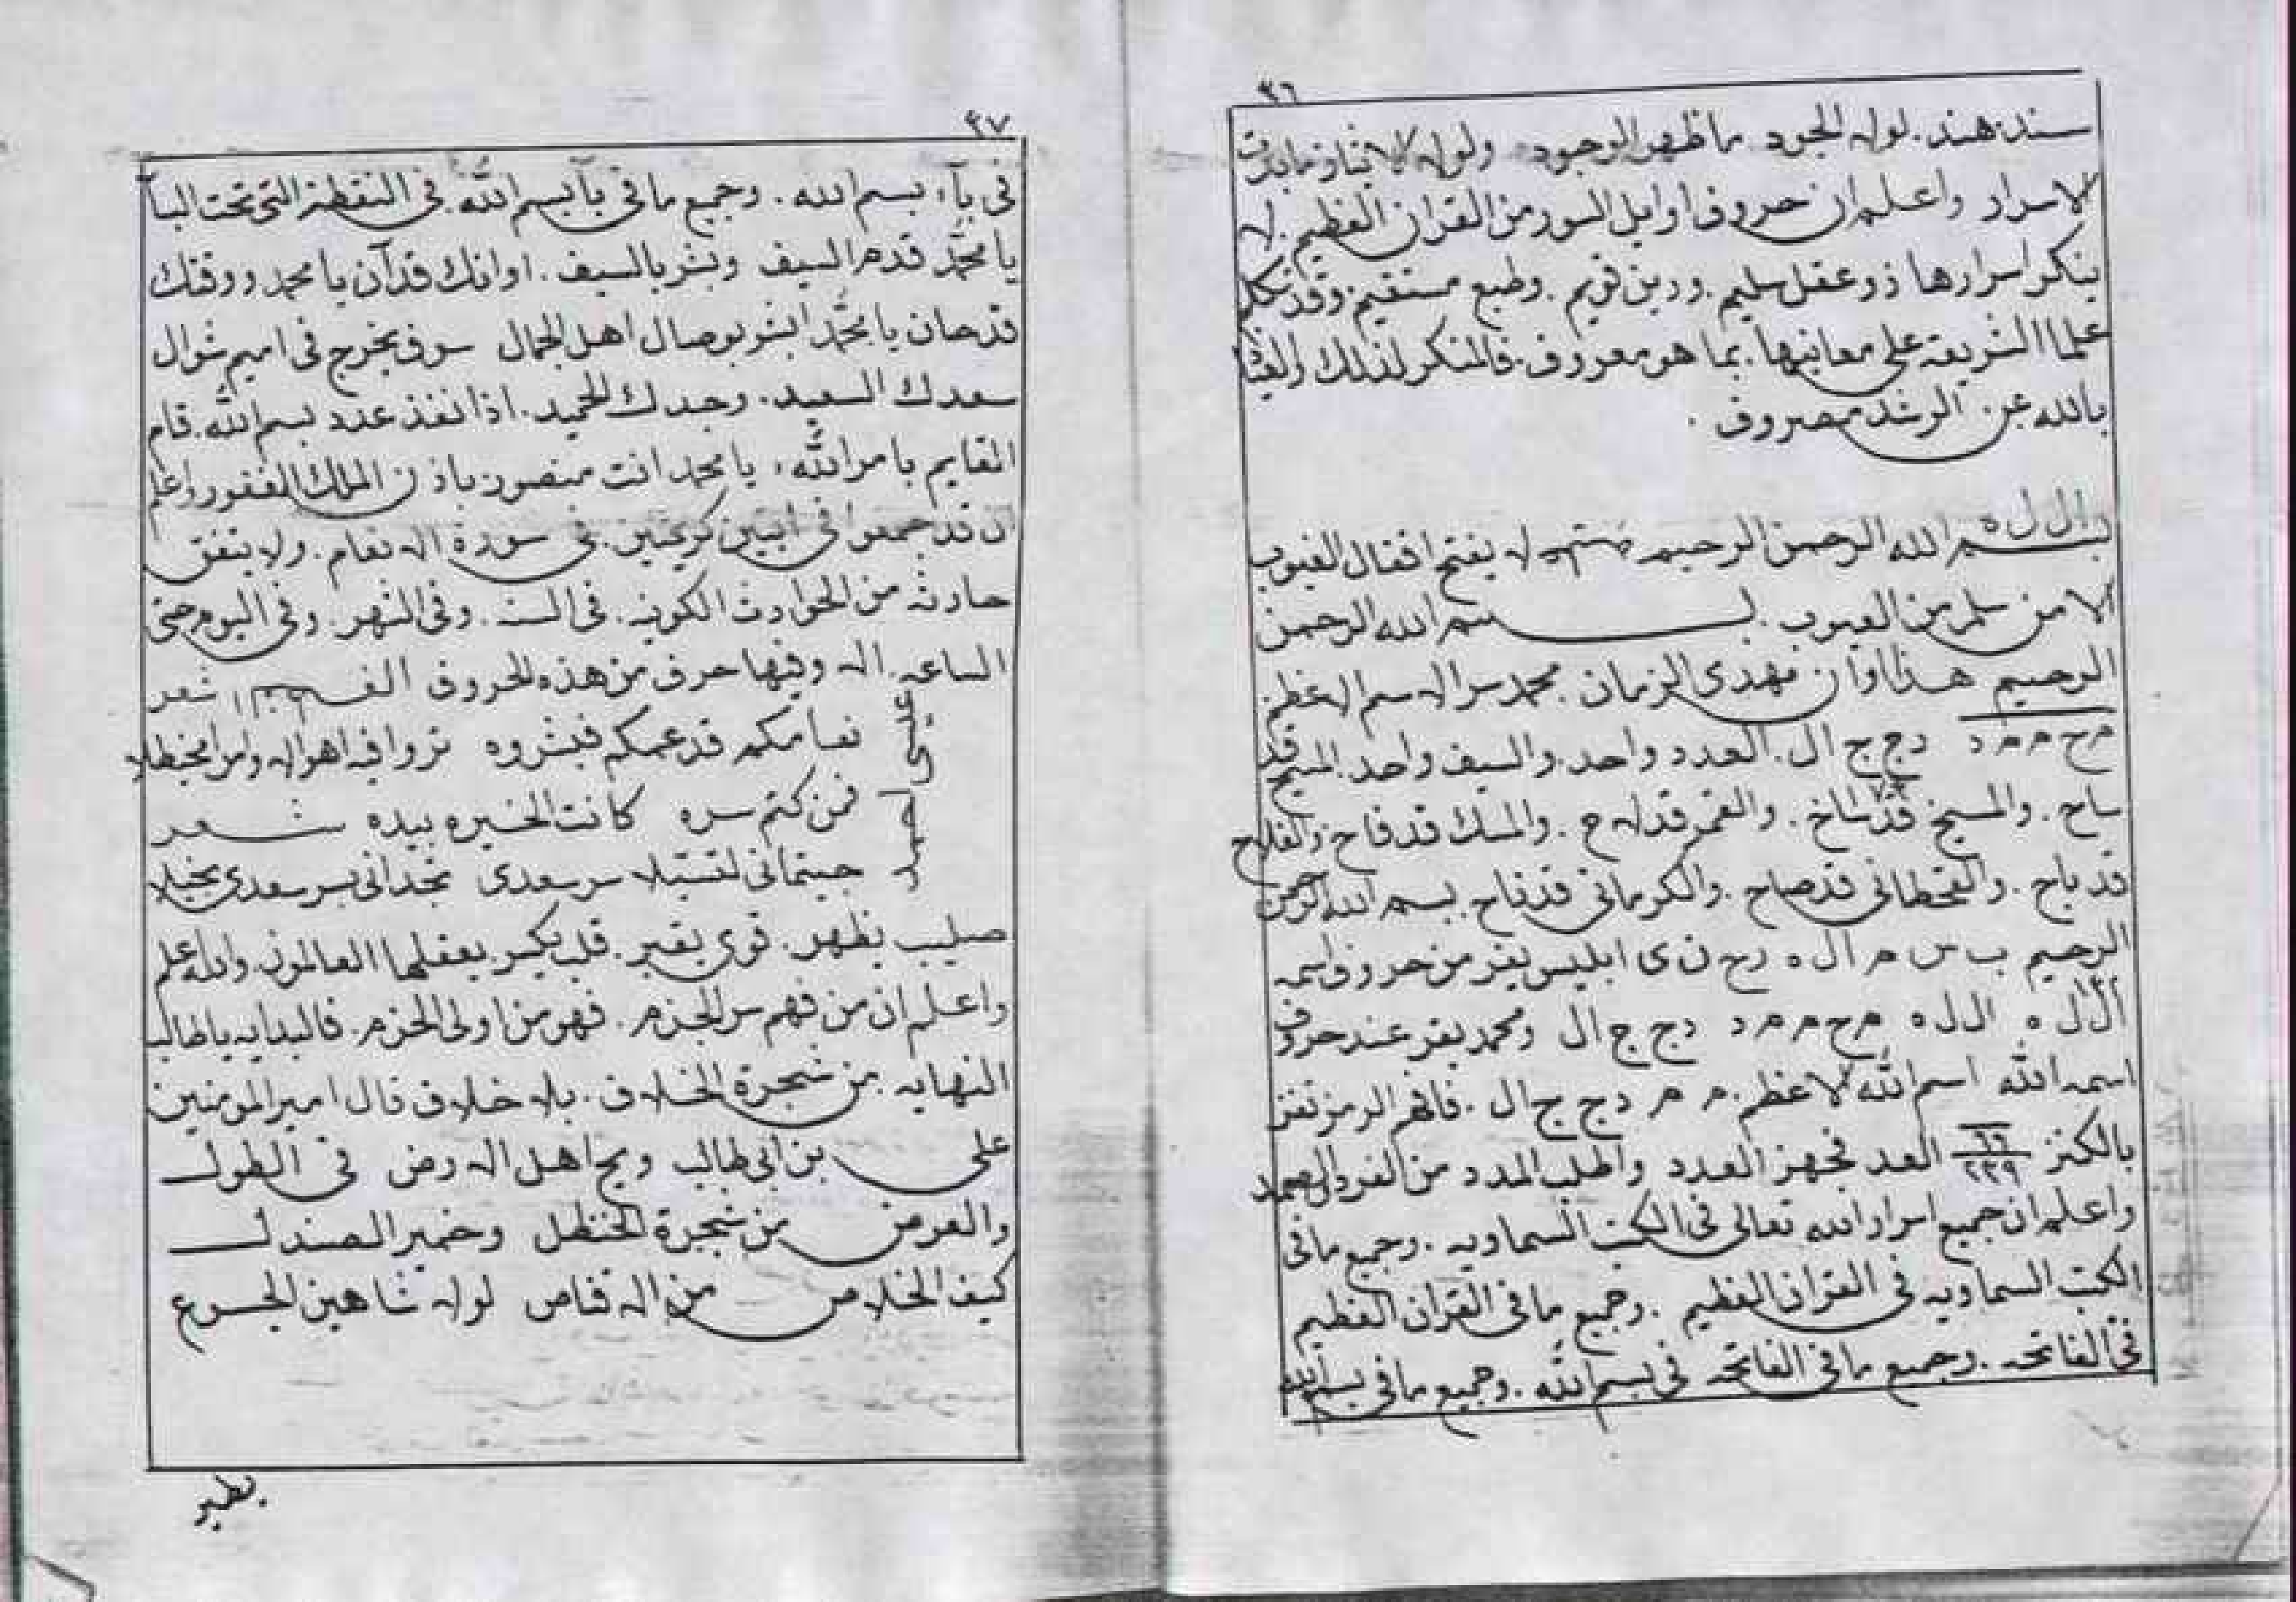 ٣٦
سند هند. لولا الجود ما ظهر الوجود ولولا
الاسرار واعلم ان حروف اوايل السور من القران العظيم. لا
ينكر اسرارها ذو عقل سليم. ودين قويم. وطبع مستقيم وقد تكلم
علما الشريعة على معانيها. بما هو معروف. فالمنكر لذلك والعياذ
بالله عن الرشد مصروف.
ا ل ل ه
بسم الله الرحمن الرحيم لا يفتح اقفال الغيوب
الا من سلم من العيوب. بسم الله الرحمن
الرحيم هذا اوان مهدى الزمان. محمد سر الاسم الاعظم
م ح م م د د ج ج ا ل. العدد واحد. والسيف واحد. المسيح قد
ساح. والمسيخ قد ساخ. والقمر قد لاح. والمسك قد فاح والفلاح
قد باح. والقحطانى قد صاح. والكرمانى قد ناح. بسم الله الرحمن
الرحيم ب س م ا ل ه ر ح ن ى ابليس يفر من حروف اسمه
ا ل ل ه ا ل ل ه م ح م م د د ج ج ا ل ومحمد يقر عند حروف
اسمه الله اسم الله الاعظم. م م د ج ج ا ل. فافهم الرمز تفز
بالكنز ٦٦ ٢٣٩ العد فجهز العدد واطلب المدد من الفرد الصمد
واعلم ان جميع اسرار الله تعالى فى الكتب السماويه. وجميع ما فى
الكتب السماويه فى القران العظيم. وجميع ما فى القران العظيم
فى الفاتحه. وجميع ما فى الفاتحه فى بسم الله. وجميع ما فى بسم الله
٣٧
فى بآء بسم الله. وجميع ما فى بآ بسم الله. فى النقطة التى تحت البآ
يا محمد قدم السيف وبشر بالسيف. اوانك قد آن يا محمد ووقتك
قد حان يا محمد ابشر بوصال اهل الجمال سوف يخرج فى اميم شوال
سعدك السعيد. وجدك الحميد. اذا نفذ عدد بسم الله. قام
القايم بامر الله، يا محمد انت منصور باذن الملك الغفور واعلم
ان قد جمعوا فى ايتين كريمتين. فى سورة الانعام. ولا يتفق
حادثه من الحوادث الكونيه. فى السنه. وفى الشهر. وفى اليوم حتى
الساعه. الا وفيها حرف من هذه الحروف شعر
نعامكم قد عمكم فبشروه تروا فيه اهوالا وامرا مخبطلا
فمن كتم سره كانت الخيره بيده شعر
عيسى احمد
جيتمانى لقستبلا سر سعدى نجدانى بسر سعدى نخيلا
صليب يظهر. قوى يقبر. قلب يكسر. يعقلها العالمون. والله اعلم
واعلم ان من فهم سر الجزم. فهو من اولى الحزم. فالبدايه يا طالب
النهايه. من شجرة الخلاف. بلا خلاف قال امير المومنين
على بن ابى طالب ويح اهل الارض فى الطول
والعرض من شجرة الحنظل وخمير الصندل
كيف الخلاص من الاقفاص لولا شاهين الجسوع
يطير